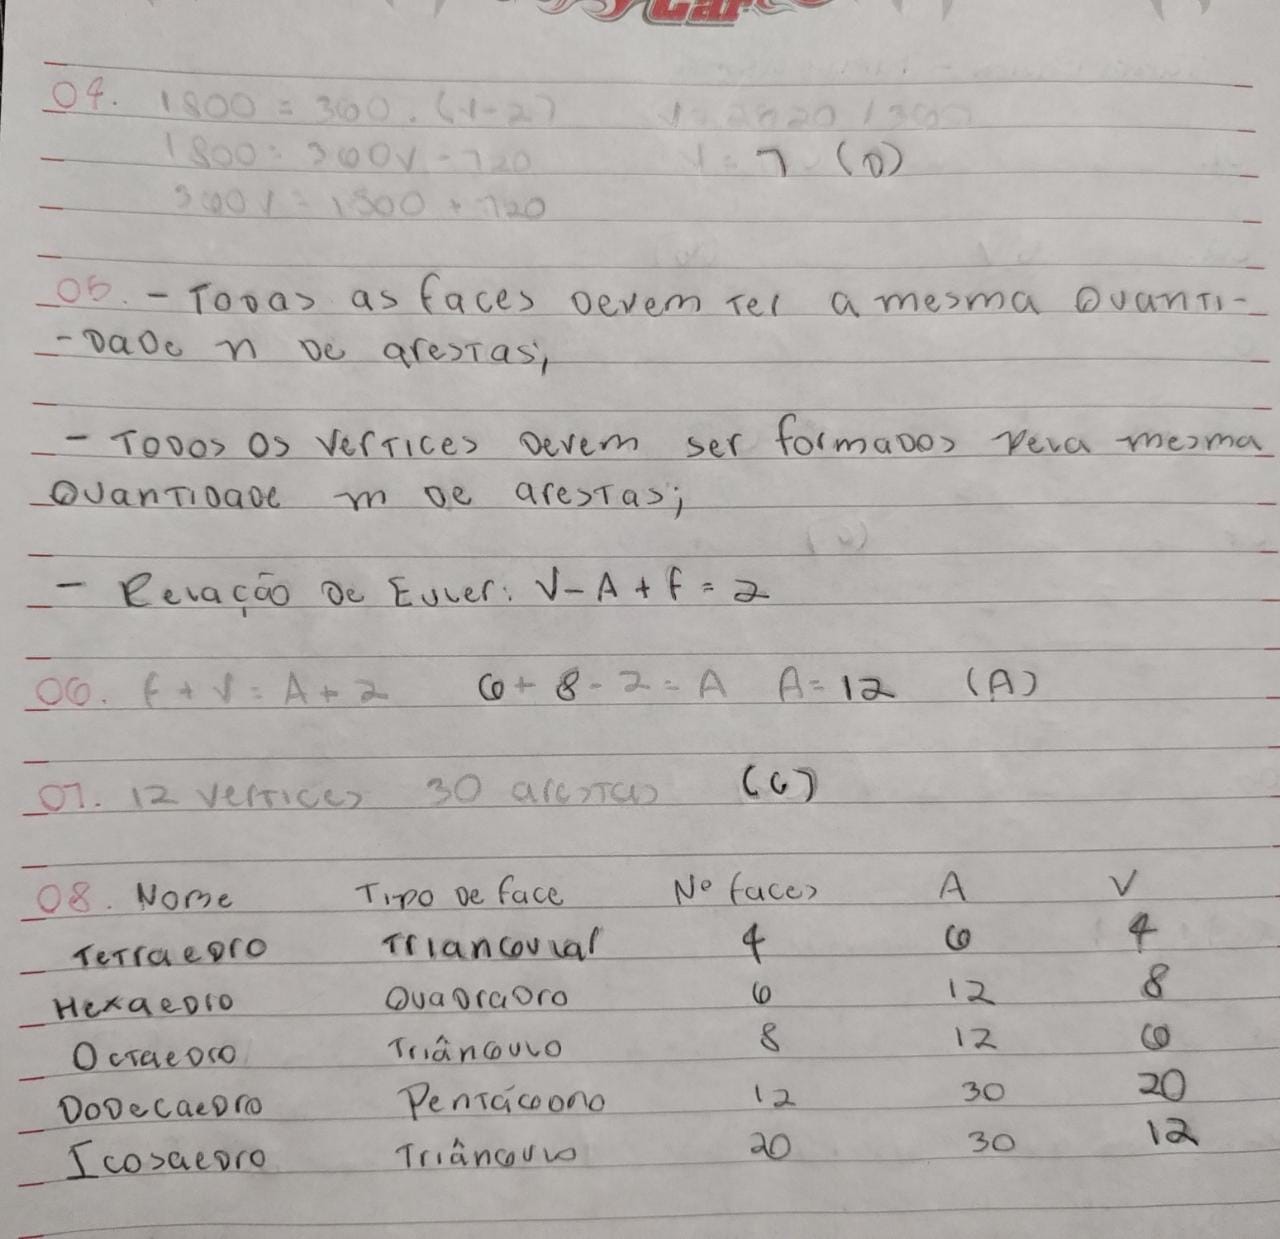 Car
04. 1800 = 360 . (V-2) V = 2520 / 360
1800 = 360V - 720 V = 7 (D)
360V = 1800 + 720
05. - Todas as faces devem ter a mesma quanti-
-dade n de arestas;
- Todos os vertices devem ser formados pela mesma
quantidade m de arestas;
- Relação de Euler: V - A + F = 2
06. F + V = A + 2 6 + 8 - 2 = A A = 12 (A)
07. 12 vertices 30 arestas (C)
08. Nome Tipo de face Nº faces A V
Tetraedro Triangular 4 6 4
Hexaedro Quadrado 6 12 8
Octaedro Triângulo 8 12 6
Dodecaedro Pentágono 12 30 20
Icosaedro Triângulo 20 30 12